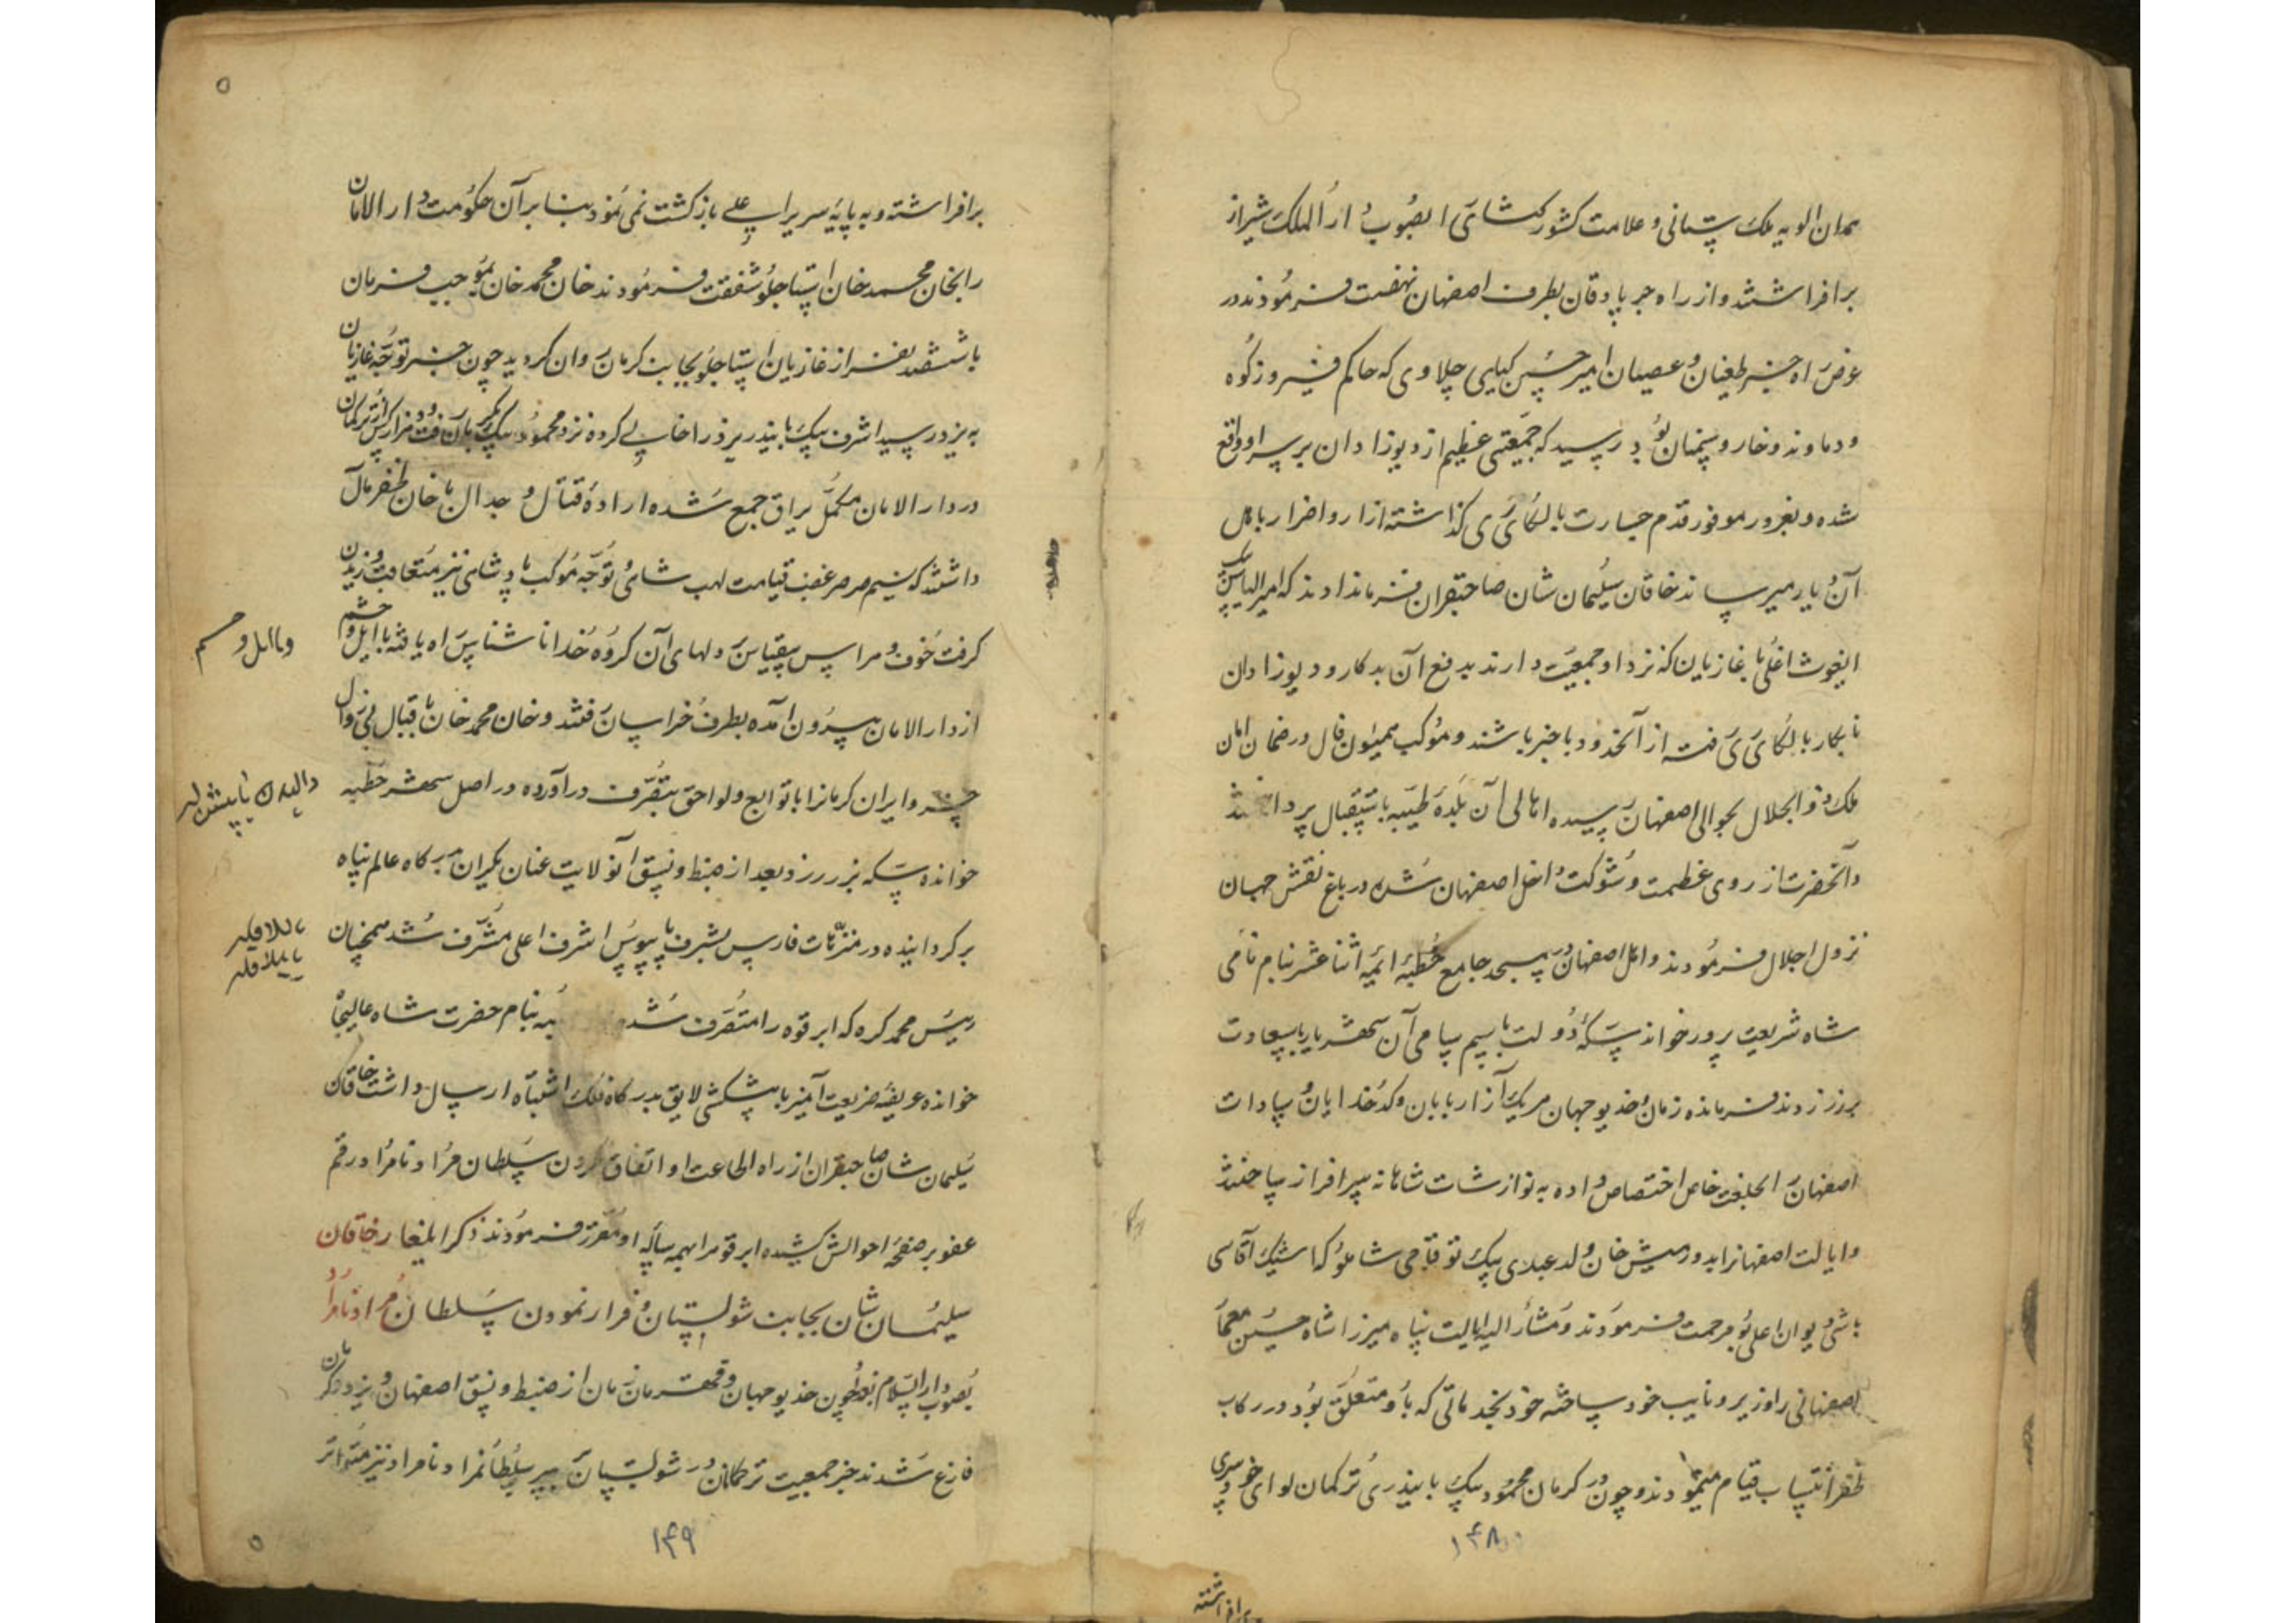 همدان الویه ملک ستانی و علامت کشور کشائی بصوب دار الملک شیراز
برافراشتند و از راه جرپادقان بطرف اصفهان نهضت فرمودند در
عرض راه خبر طغیان و عصیان امیر حسین کیایی چلاوی که حاکم فیروزکوه
و دماوند و خار و سمنان بود رسید که جمعیتی عظیم از دیوزادان بر سر او واقع
شده و بغرور موفور قدم جسارت بالکای ری گذاشته آزار و اضرار باهل
آن دیار میرساند خاقان سلیمان شان صاحبقران فرمان دادند که امیر الیاس بیک
ایغوث اغلی با غازیان که نزد او جمعیت دارند بدفع آن بدکار و دیوزادان
نابکار بالکای ری رفته از آنحدود با خبر باشند و موکب همیون فال در ضمان امان
ملک ذو الجلال بحوالی اصفهان رسیده اهالی آن بلده طیبه باستقبال پرداختند
و آنحضرت از روی عظمت و شوکت داخل اصفهان شده در باغ نقش جهان
نزول اجلال فرمودند و اهل اصفهان در مسجد جامع خطبه ائمه اثنا عشر بنام نامی
شاه شریعت پرور خواند سکه دولت باسم سامی آن شهریار باسعادت
بر زر زدند فرمانده زمان و خدیو جهان هر یک از ارباب و کدخدایان و سادات
اصفهان را بخلعت خاص اختصاص داده به نوازشات شاهانه سرافراز ساختند
و ایالت اصفهانرا بدورمیش خان ولد عبدی بیک توقاجی شاملو که اشیک آقاسی
باشی دیوان اعلی بود مرحمت فرمودند و مشار الیه ایالت پناه میرزا شاه حسین معمار
اصفهانی را وزیر و نایب خود ساخته خود بخدماتی که باو متعلق بود در رکاب
ظفر انتساب قیام مینمودند و چون در کرمان محمود بیک بایندری ترکمان لوای خودسری
برافراشته
۱۴۸
برافراشته و به پایه سریر اعلی بازگشت نمی نمود بنابر آن حکومت دار الامان
را بخان محمد خان استاجلو شفقت فرمودند خان محمد خان بموجب فرمان
با ششصد نفر از غازیان استاجلو بجانب کرمان روان گردید چون خبر توجه غازیان
به یزد رسید اشرف بیک بایندر یزد را خالی کرده نزد محمود بیک بکرمان رفت و هزار کس از ترکمان
در دار الامان مکمل یراق جمع شده اراده قتال و جدال با خان ظفر مآل
داشتند که نسیم صرصر غضب قیامت لهب شاهی و توجه موکب پادشاهی نیز متعاقب وزیدن
گرفت خوف و هراس بیقیاس در دلهای آن گروه خدانا شناس راه یافته با ایل و حشم
از دار الامان بیرون آمده بطرف خراسان رفتند و خان محمد خان باقبال بی زوال
خسرو ایران کرمانرا با توابع و لواحق بتصرف درآورده در اصل شهر خطبه
خوانده سکه بزر زد و بعد از ضبط و نسق آنولایت عنان یکران بدرگاه عالم پناه
برگردانیده در متنزهات فارس بشرف پایبوس اشرف اعلی مشرف شد همچنان
رییس محمد کره که ابرقوه را متصرف شده بنام حضرت شاه عالیجاه
خوانده عریضه ضریعت آمیز با پیشکشی لایق بدرگاه فلک اشتباه ارسال داشت خاقان
سلیمان شان صاحبقران از راه اطاعت او اتفاق کردن سلطان مراد نامراد رقم
عفو بر صفحه احوالش کشیده ابرقو را بهمه ساله او مقرر فرمودند ذکر ایلغار خاقان
سلیمان شان بجانب شولستان و فرار نمودن سلطان مراد نامراد
بصوب دار السلام بغداد چون خدیو جهان و قهرمان زمان از ضبط و نسق اصفهان و یزد و کرمان
فارغ شدند خبر جمعیت ترکمانان در شولستان بر سر سلطانمراد نامراد نیز متواتر
۱۴۹
و با ایل و حشم